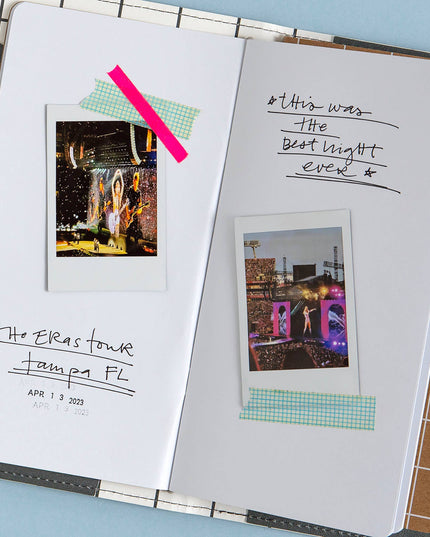 the ERAS tour
tampa FL
APR 13 2023
APR 13 2023
☆ this was
the
best night
ever ☆